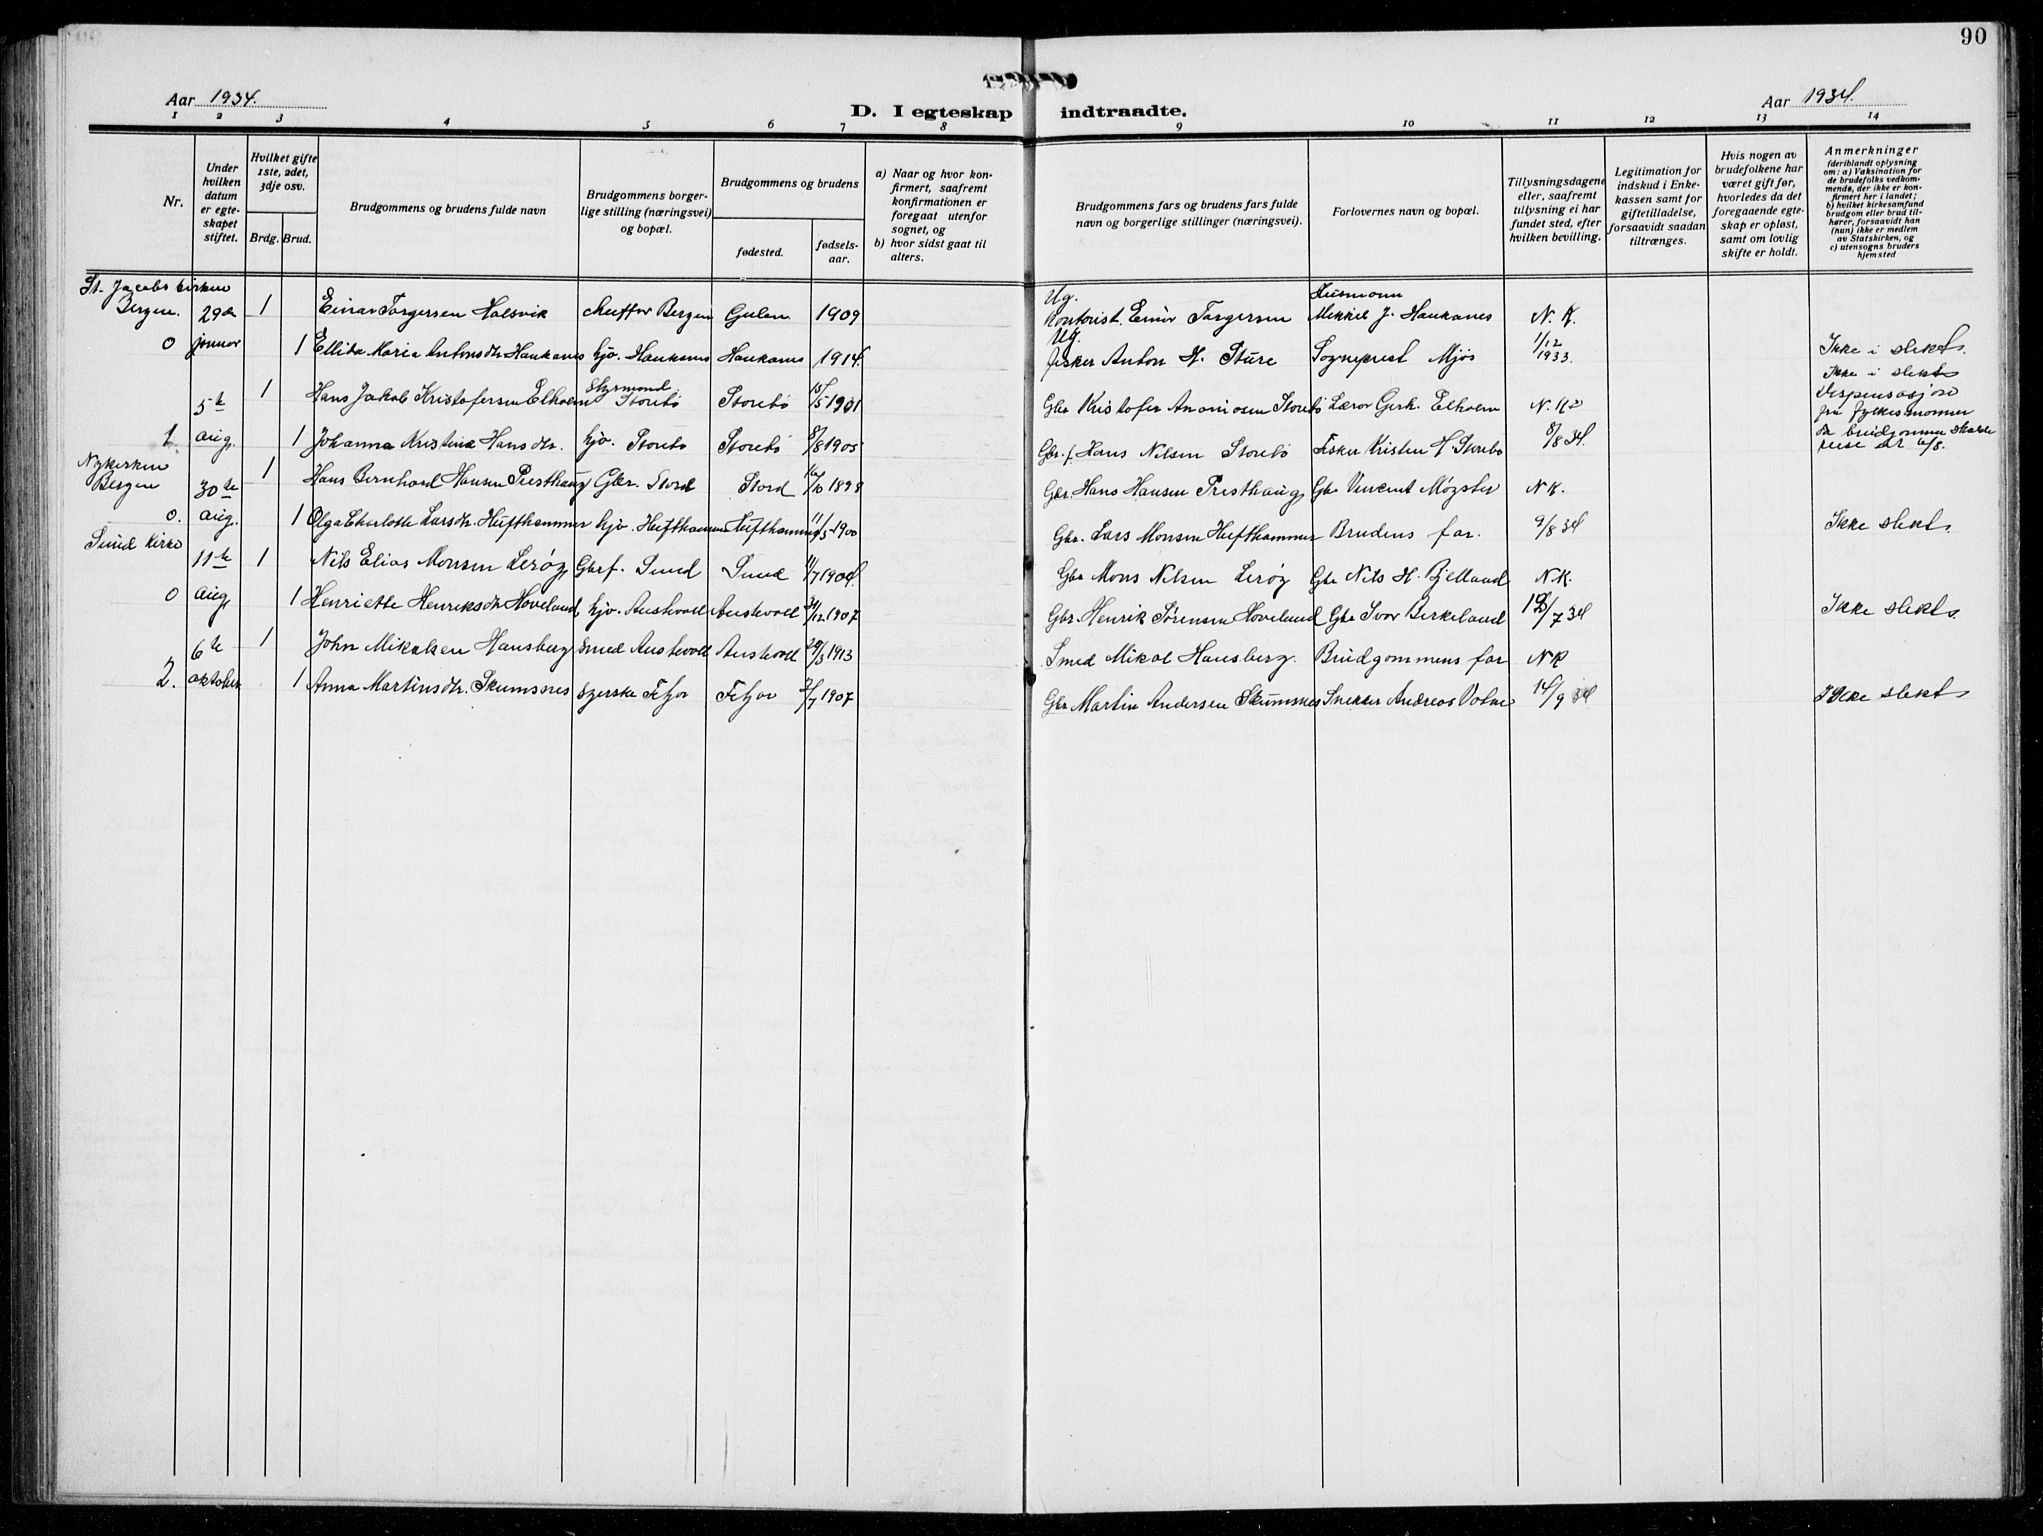 90
Aar 1934.
D. I egteskap indtraadte.
Aar 1934.
1 2 3 4 5 6 7 8 9 10 11 12 13 14
Nr.
Under hvilken datum er egte-skapet stiftet.
Hvilket gifte 1ste, 2det, 3dje osv.
Brdg. Brud.
Brudgommens og brudens fulde navn
Brudgommens borger-lige stilling (næringsvei) og bopæl.
Brudgommens og brudens
fødested.
fødsels-aar.
a) Naar og hvor kon-firmert, saafremt konfirmationen er foregaat utenfor sognet, og
b) hvor sidst gaat til alters.
Brudgommens fars og brudens fars fulde navn og borgerlige stillinger (næringsvei).
Forlovernes navn og bopæl.
Tillysningsdagene eller, saafremt tillysning ei har fundet sted, efter hvilken bevilling.
Legitimation for indskud i Enke-kassen samt for giftetilladelse, forsaavidt saadan tiltrænges.
Hvis nogen av brudefolkene har været gift før, hvorledes da det foregaaende egte-skap er opløst, samt om lovlig skifte er holdt.
Anmerkninger
(deriblandt oplysning om: a) Vaksination for de brudefolks vedkom-mende, der ikke er kon-firmert her i landet; b) hvilket kirkesamfund brudgom eller brud til-hører, forsaavidt han (hun) ikke er medlem av Statskirken, og c) utensogns bruders hjemsted
St. Jacobs kirken
Bergen. 29de 1 Einar Torgersen Halsvik Bergen Gulen 1909 Ug. Kontorist Einar Torgersen Husmann Mikkel J. Haukanes N. K.
0 januar 1 Ellida Maria Antonsdtr Haukanes hjv. Haukanes Haukanes 1914. Ug. fisker Anton H. Sture Sogneprest Mjøs 1/12 1933. Ikke i slekt.
5te 1 Hans Jakob Kristofersen Elholm Styrmand Storebø Storebø 15/5 1901 Gbr Kristofer Storebø Lærer Gerh. Elholm N. K. Ikke i slekt Dispensasjon fra fylkesmannen
1 aug. 1 Johanna Kristine Hansdtr. hjv. Storebø Storebø 8/8 1905 Gbr.f. Hans Nilsen Storebø Fisker Kristen H. Storebø 8/8 34. da brudgommen skulde reise
Nykirken
Bergen 30te 1 Hans Bernhard Hansen Presthaug Gbr. Stord Stord 16/10 1898 Gbr. Hans Hansen Presthaug Gbr Vincent Møgster N K.
0. aug. 1 Olga Charlotte Larsdtr. Hufthammer hjv. Hufthammer Hufthammer 11/5 1900 Gbr. Lars Monsen Hufthammer Brudens far. 9/8 34 Ikke slekt.
Sund Kirke
11te 1 Nils Elias Monsen Lerøy Gbrf. Sund Sund 11/7 1904. Gbr Mons Nilsen Lerøy Gbr Nils H. Bjelland N K.
0 aug. 1 Henriette Henriksdtr Hoveland hjv. Austevoll Austevoll 31/12 1907 Gbr. Henrik Sørensen Hoveland Gbr Ivar Birkeland 7 34 Ikke slekt.
6te 1 John Mikalsen Hansberg Smed Austevoll Austevoll 20/3 1913 Smed Mikal Hansberg. Brudgommens far N K
2. oktober 1 Anna Martinsdtr. Skumsnes syerske Fitjar Fitjar 2/7 1907 Gbr Martin Andersen Skumsnes Snekker Andreas 14/9 34 Ikke slekt.